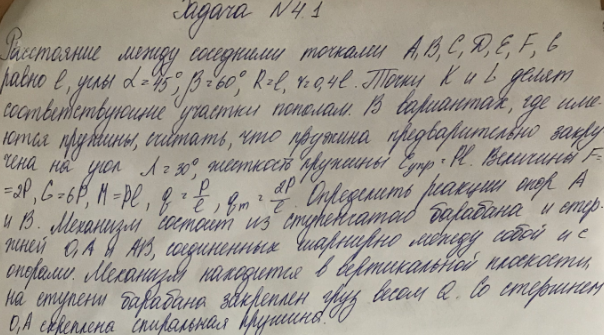 Задача №4.1
Расстояние между соседними точками A, B, C, D, E, F, G
равно l, углы α = 45°, β = 60°, R = l, r = 0,4l. Точки K и L делят
соответствующие участки пополам. В вариантах, где име-
ются пружины, считать, что пружина предварительно закру
чена на угол λ = 30°, жесткость пружины Cупр = Pl. Величины F=
=2P, G = 6P, M = Pl, q = P/l, qm = 2P/l. Определить реакции опор A
и B. Механизм состоит из ступенчатого барабана и стер-
жней O₁A и AB, соединенных шарнирно между собой и с
опорами. Механизм находится в вертикальной плоскости,
на ступени барабана закреплен груз весом Q. Со стержнем
O₁A скреплена спиральная пружина.